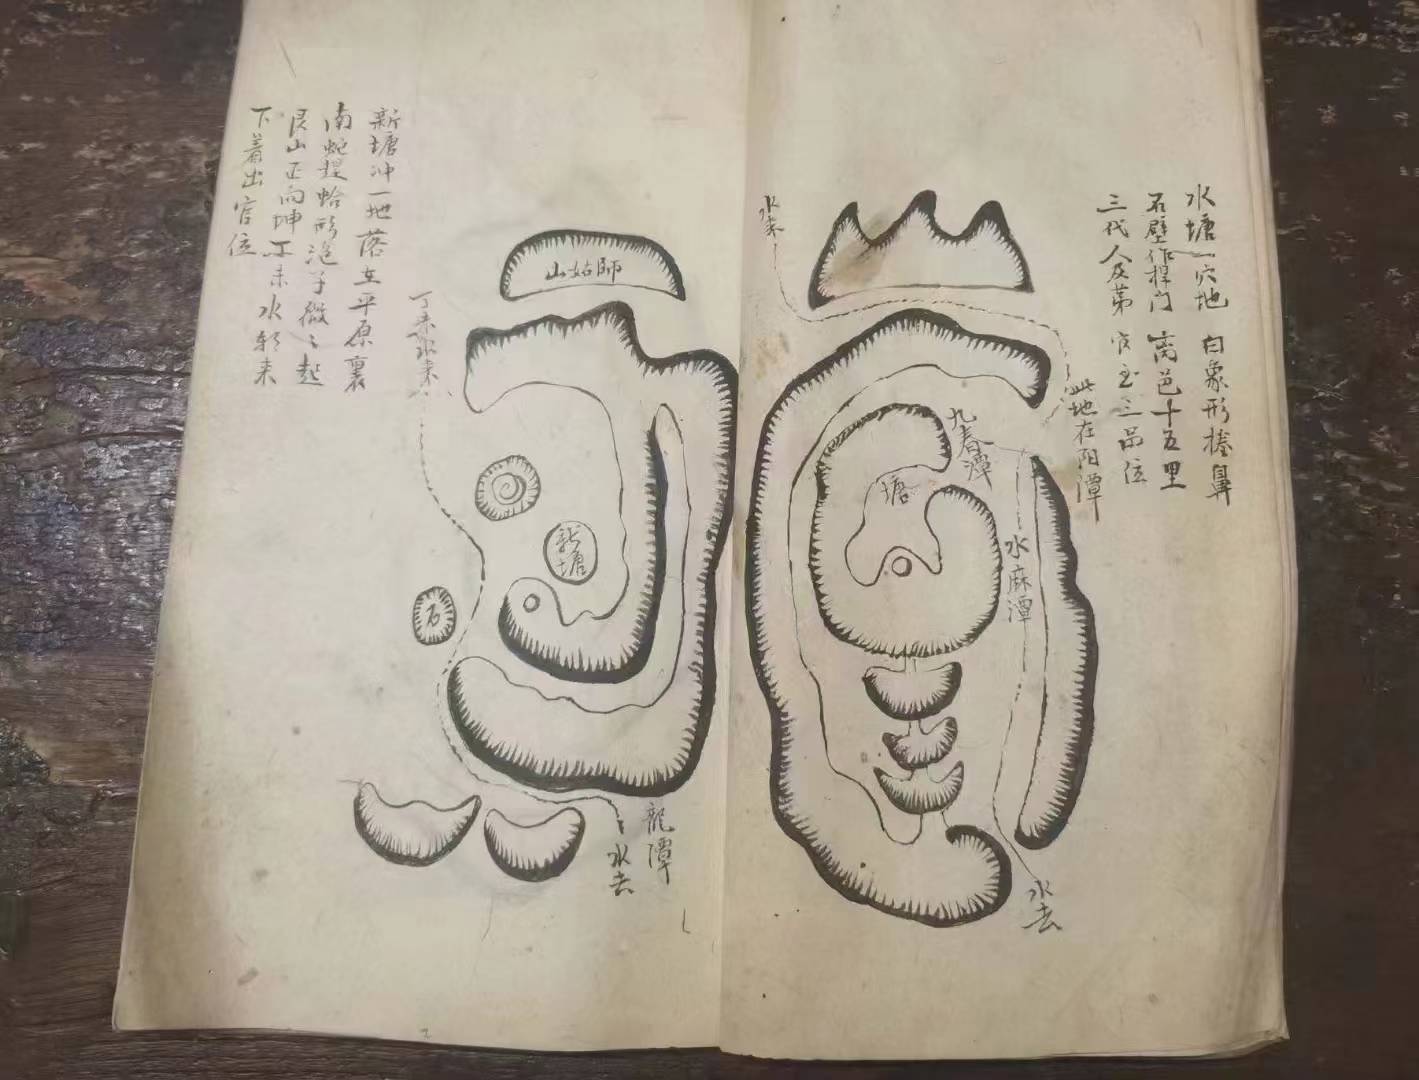 水塘一穴地 白象形捲鼻
石壁作桿门 离邑十五里
三代人及第 官至三品位
此地在阳潭
水来
九春潭
塘
水麻潭
水去
師姑山
新塘
石
龍潭
水去
丁未水来
新塘冲一地落在平原裏
南蛇趕蛤形泡子微々起
艮山正向坤 丁未水朝来
下着出官位